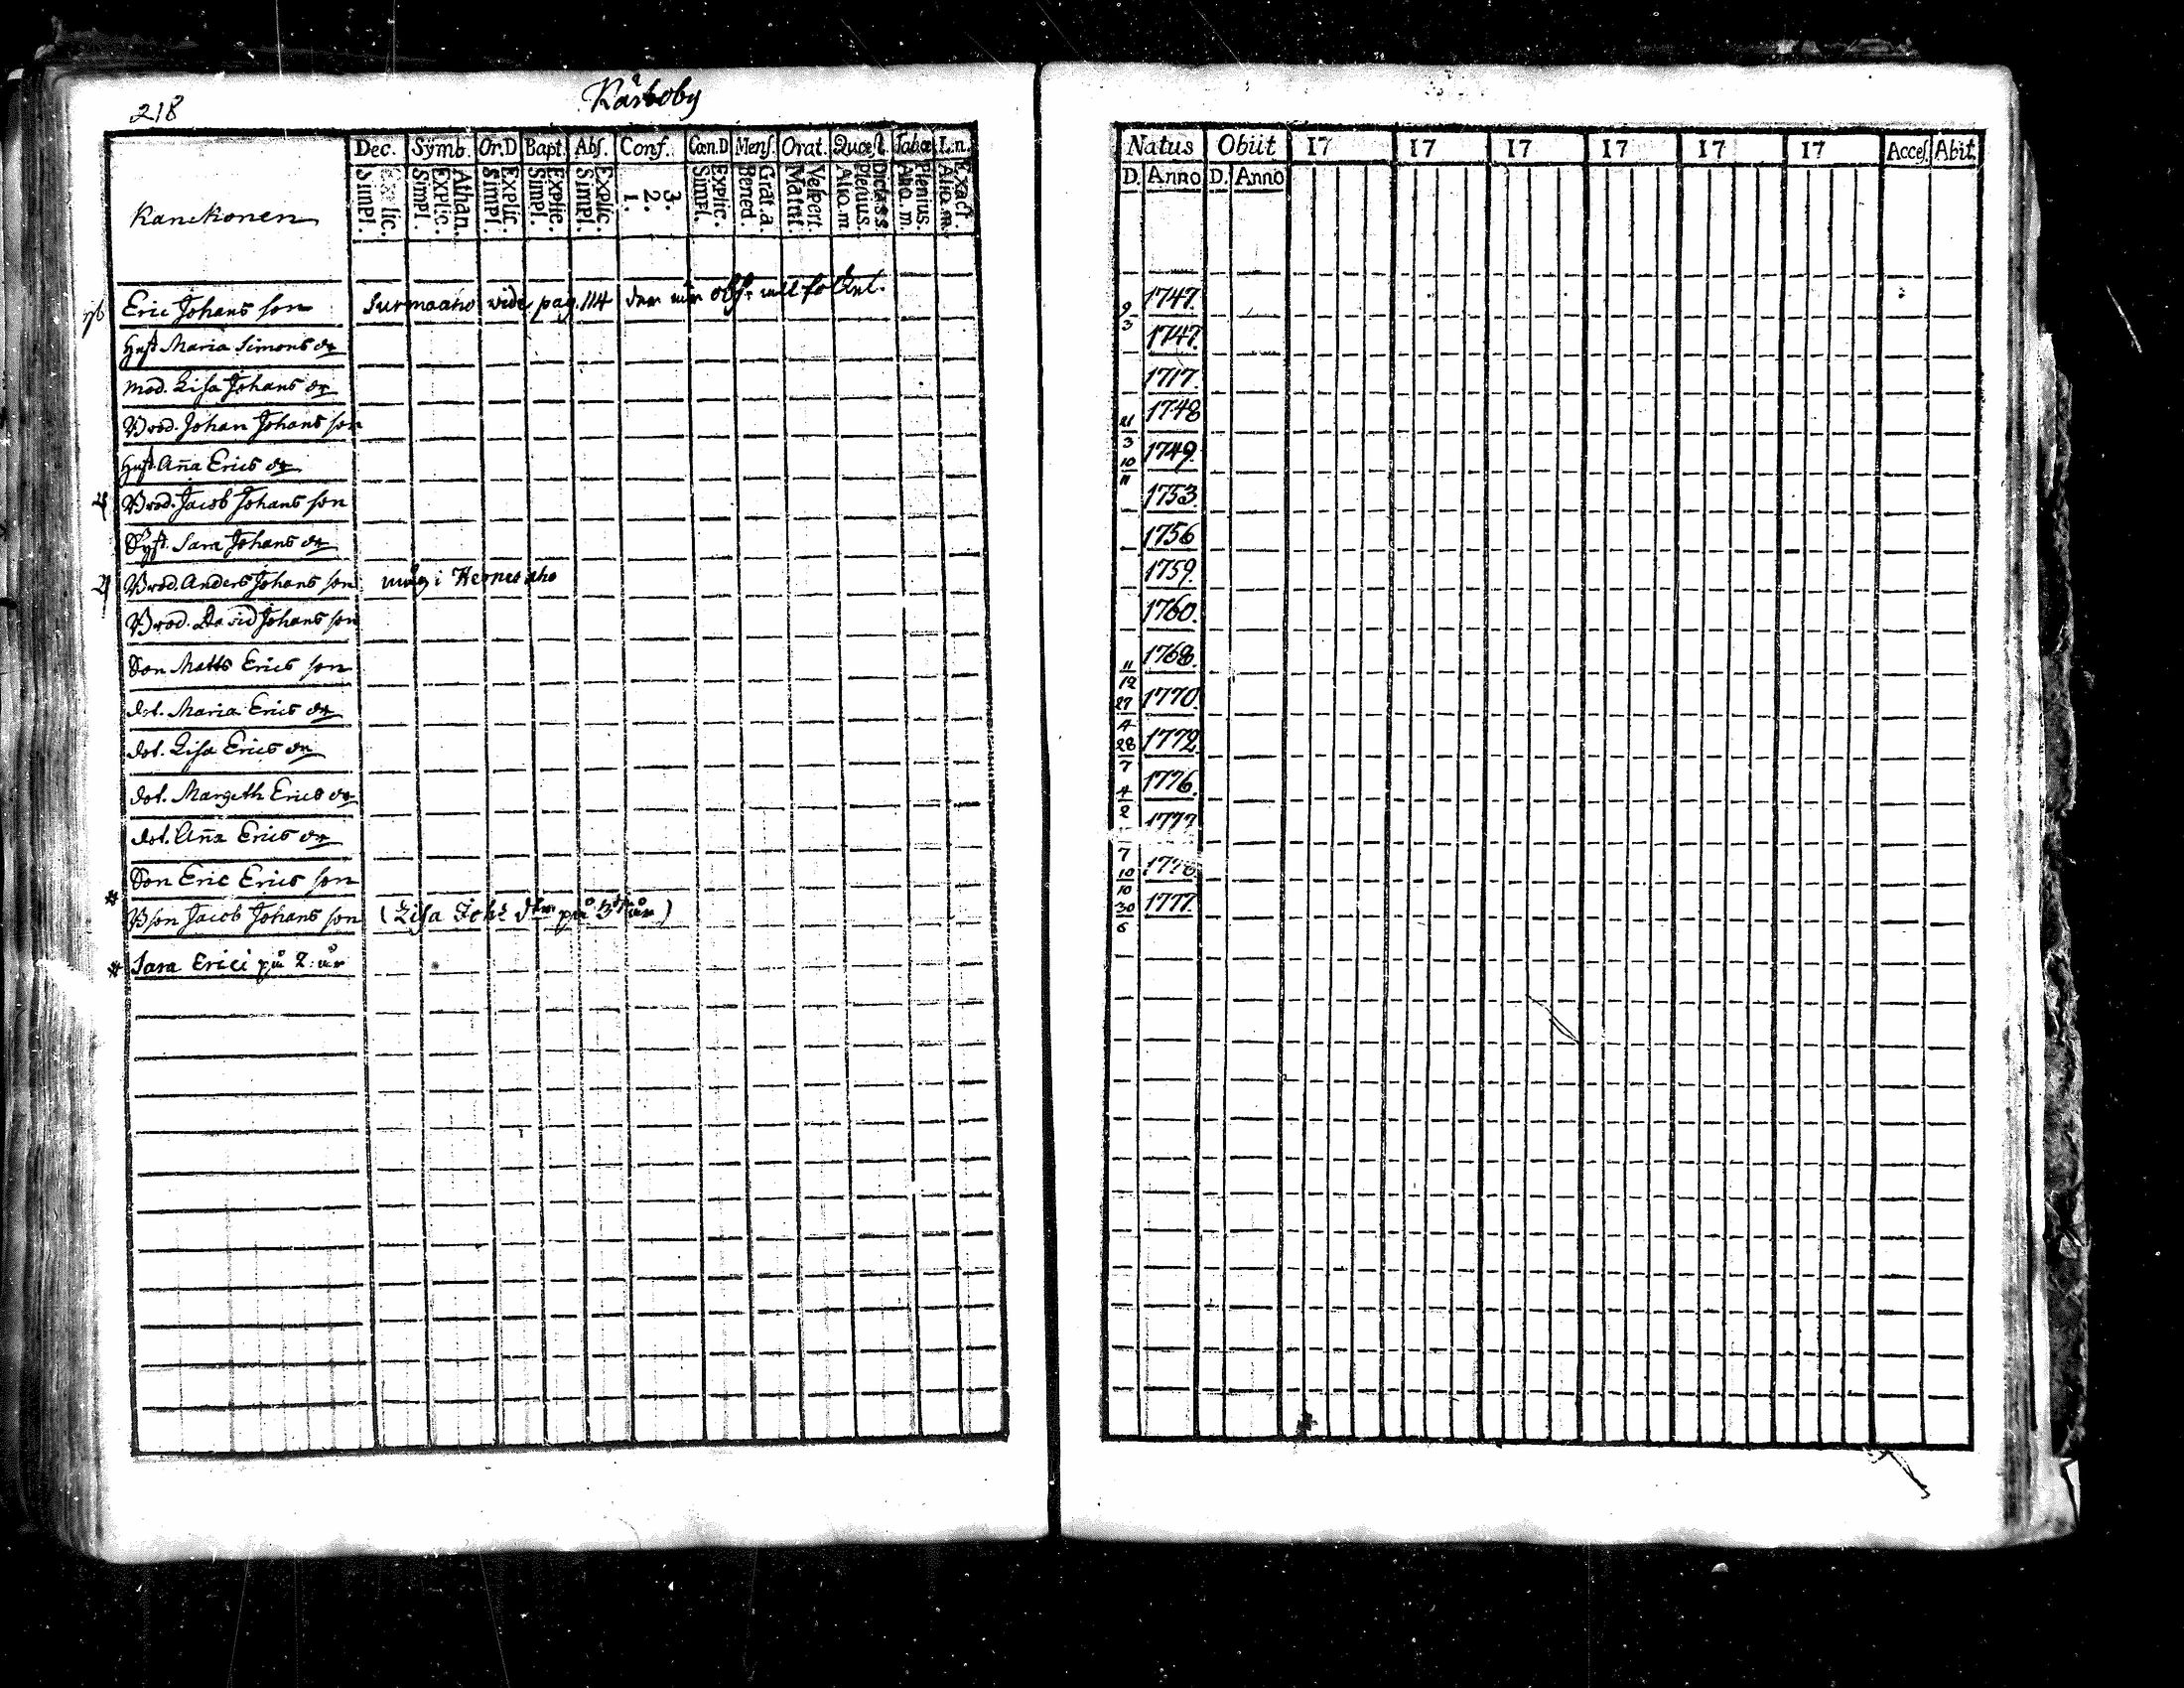 218
Kårboby
Dec. Symb. Or.D Bapt. Abs. Conf. Cœn.D Mens. Orat. Quæst. Tabæ L.n.
Simpl. Explic. Simpl. Explic. Athan. Simpl. Explic. Simpl. Explic. Simpl. Explic. 1. 2. 3. Simpl. Explic. Bened. Grat.a. Matut. Vespert. Aliq.m Plenius. Dictis s.s. Aliq.m. Plenius. Aliq.m. Exact.
Kanckonen
Eric Johans son Surmaaho vide pag. 114
Hust Maria Simons dr
Mod. Lisa Johans dr
Brod. Johan Johans son
Hust. Aña Erics dr
Brod. Jacob Johans son
Syst. Sara Johans dr
Brod. Anders Johans son måg i
Brod. David Johans son
Son Matts Erics son
dot. Maria Erics dr
dot. Lisa Erics dr
dot. Margeth Erics dr
dot. Aña Erics dr
Son Eric Erics son
Bson Jacob Johans son (Lisa Joh: dtr på 3 år)
Sara Erici på 2: år
Natus Obiit 17 17 17 17 17 17 Acces. Abit.
D. Anno D. Anno
9/3 1747.
1747.
1717.
21/3 1748
10/11 1749.
1753.
1756
1759.
1760.
11/12 1768.
27/4 1770.
28/7 1772
4/2 1776.
7/10
10
30/6 1777.